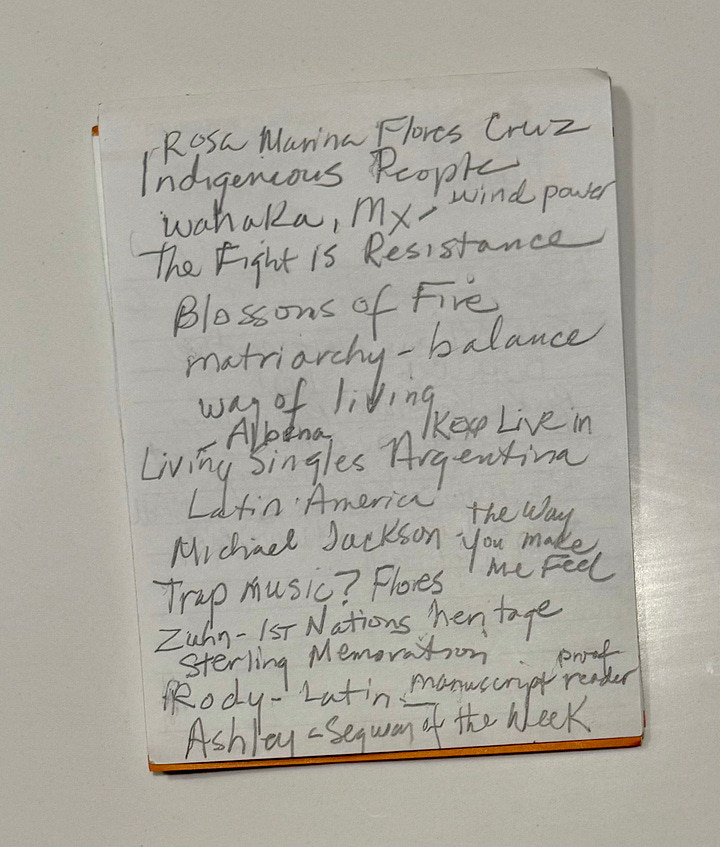 Rosa Marina Flores Cruz
Indigeneous People
wahaka, Mx - wind power
The Fight is Resistance
Blossons of Fire
matriarchy - balance
way of living
Albena Kexp Live in
Living Singles Argentina
Latin America
Michael Jackson - The Way
You make
Me Feel
Trap music? Flores
Zuhn - 1st Nations heritage
Sterling
Rody - Latin - manuscript proof
reader
Ashley - Segway of the Week